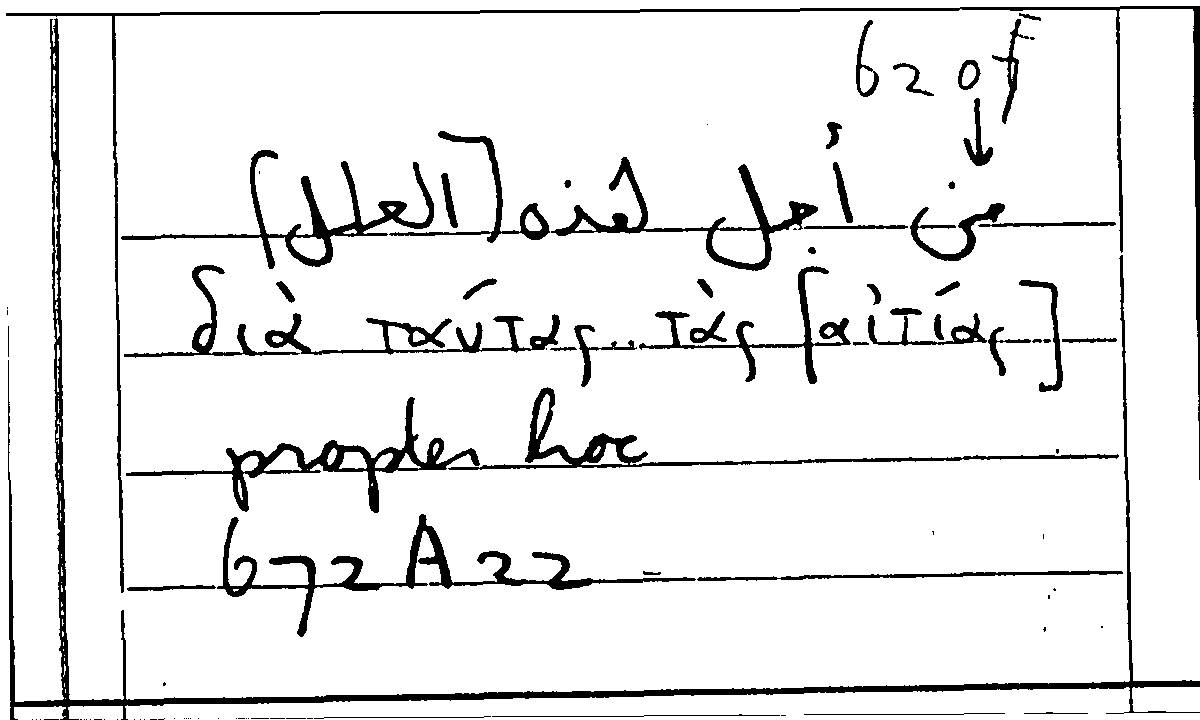 620F
من أجل هذه [العلل]
διὰ ταύτας.. τὰς [αἰτίας]
propter hoc
672A22